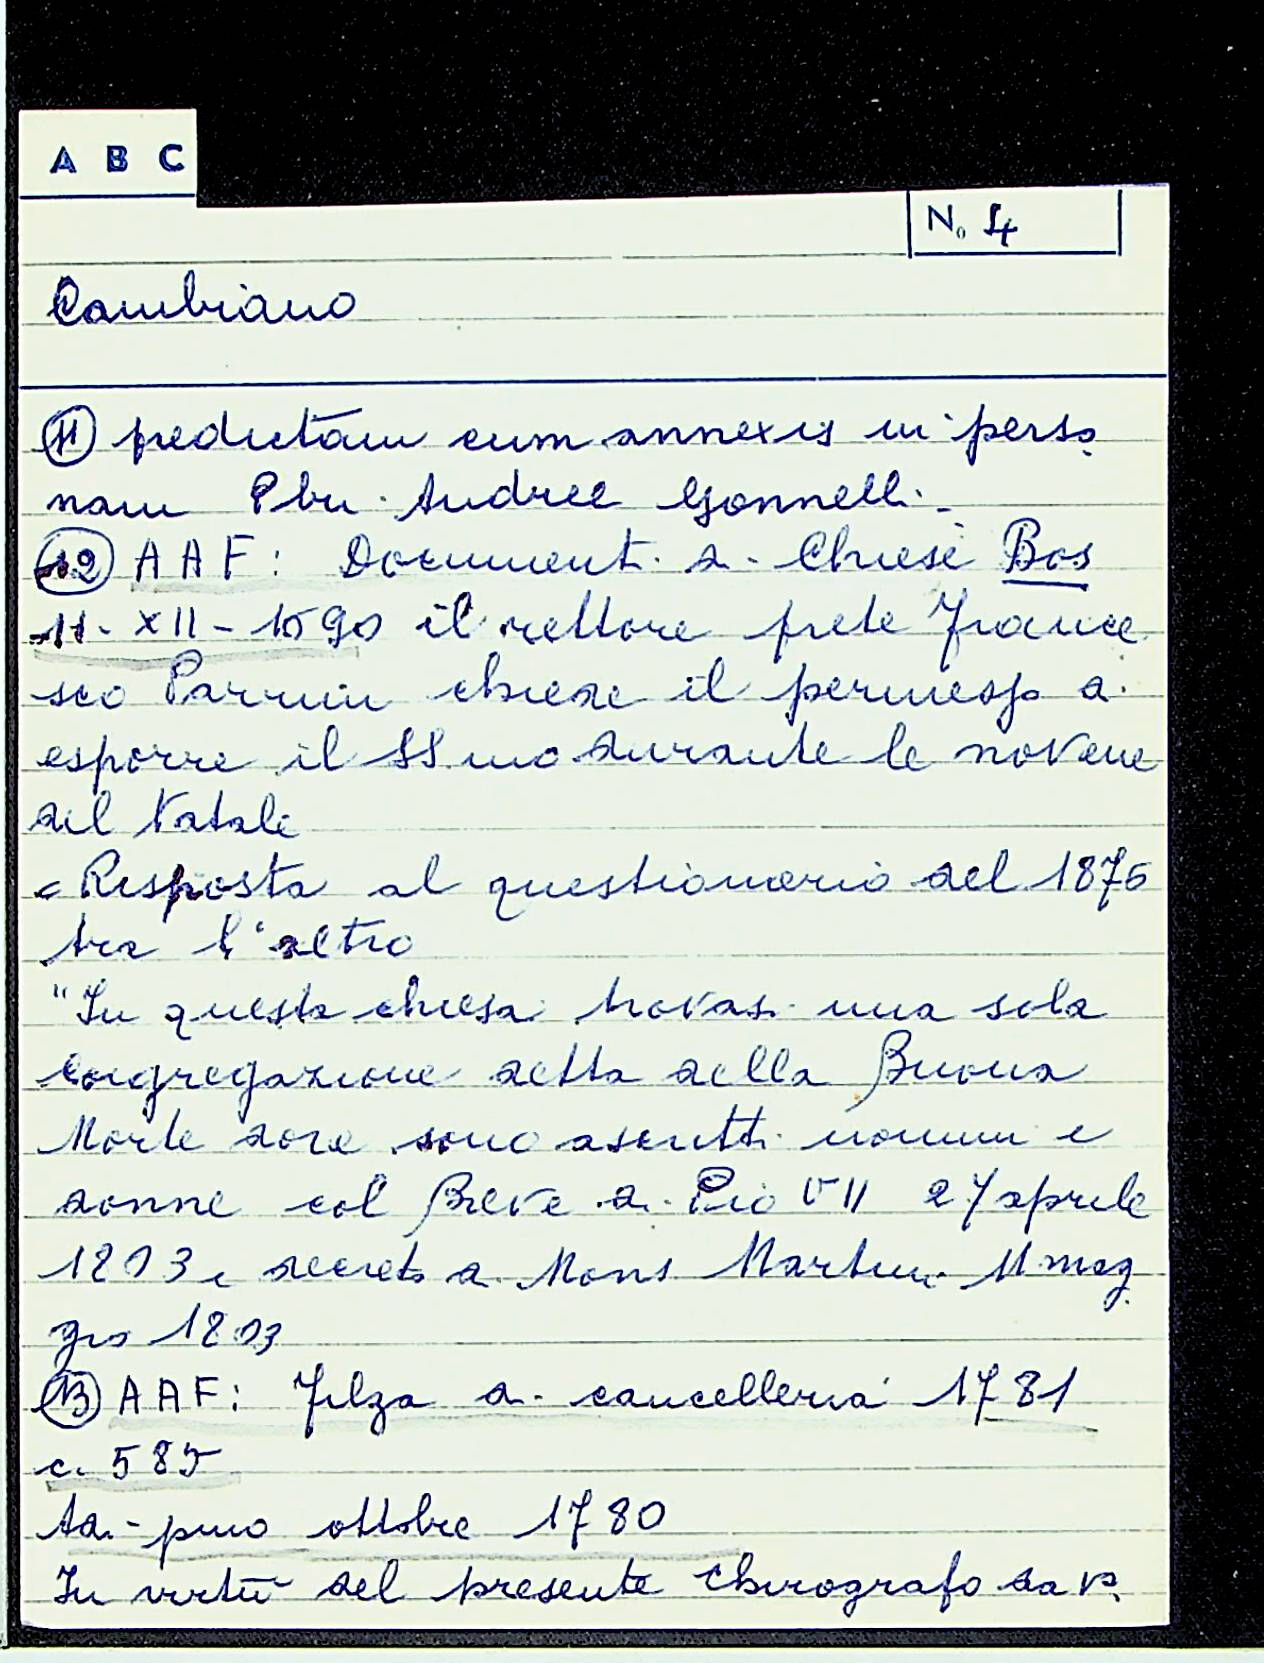 A B C
No 4
Cambiano
11 predictam cum annexis in perso
nam Pbri Andree Gonnelli.
12 AAF: Documenti di Chiese Bos
11- XII - 1590 il rettore prete France
sco Parrini chiese il permesso di
esporre il SS.mo durante le novene
del Natale
= Risposta al questionario del 1876
tra l'altro
"In questa chiesa trovasi una sola
congregazione detta della Buona
Morte dove sono ascritti uomini e
donne col Breve di Pio VII 27 aprile
1803 e decreto di Mons Martini 11 mag
gio 1803
13 AAF: Filza di cancelleria 1781
c. 585
Adi- primo ottobre 1780
In virtù del presente chirografo da